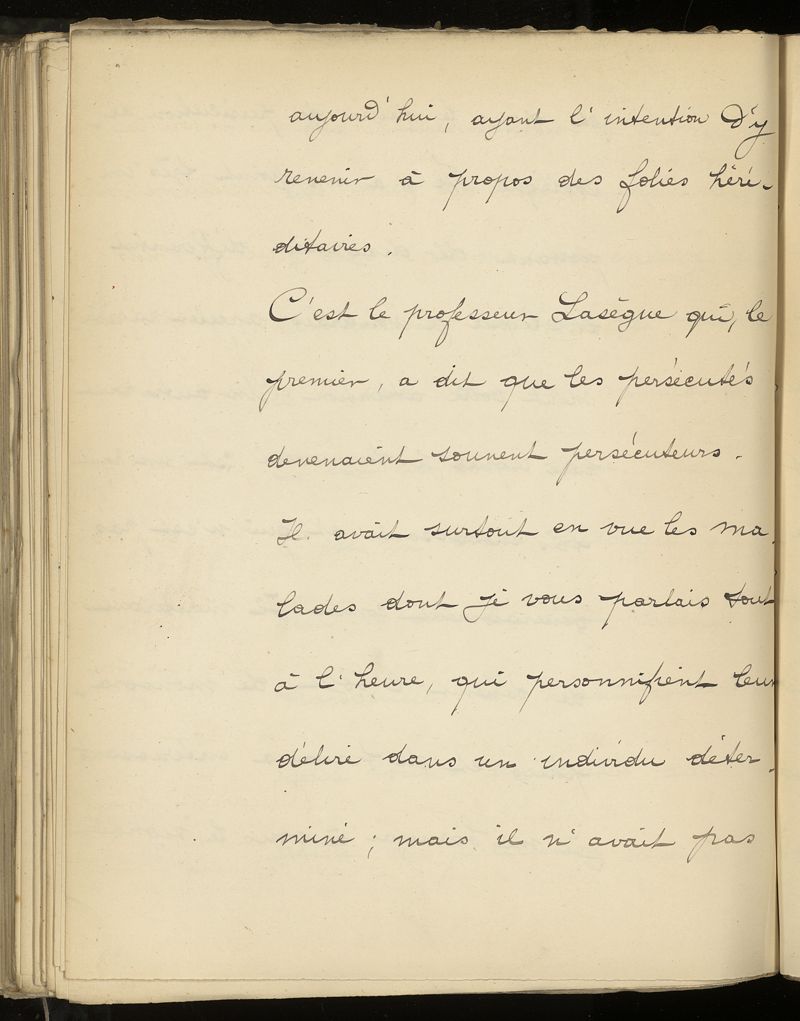 aujourd'hui, ayant l'intention d'y
revenir à propos des folies héré-
ditaires.
C'est le professeur Lasègue qui, le
premier, a dit que les persécutés
devenaient souvent persécuteurs.
Il avait surtout en vue les ma-
lades dont je vous parlais tout
à l'heure, qui personnifient leur
délire dans un individu déter-
miné ; mais il n'avait pas